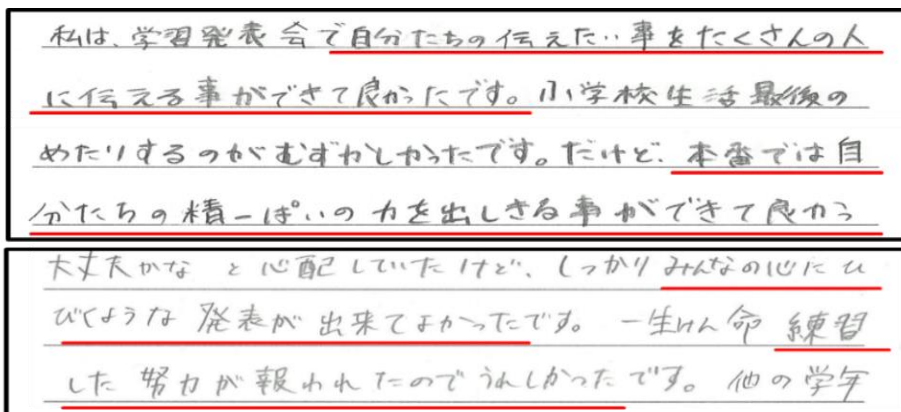 私は、学習発表会で自分たちの伝えたい事をたくさんの人
に伝える事ができて良かったです。小学校生活最後の
めたりするのがむずかしかったです。だけど、本番では自
分たちの精一ぱいの力を出しきる事ができて良かっ
大丈夫かな と心配していたけど、しっかりみんなの心にひ
びくような発表が出来てよかったです。一生けん命練習
した努力が報われたのでうれしかったです。他の学年